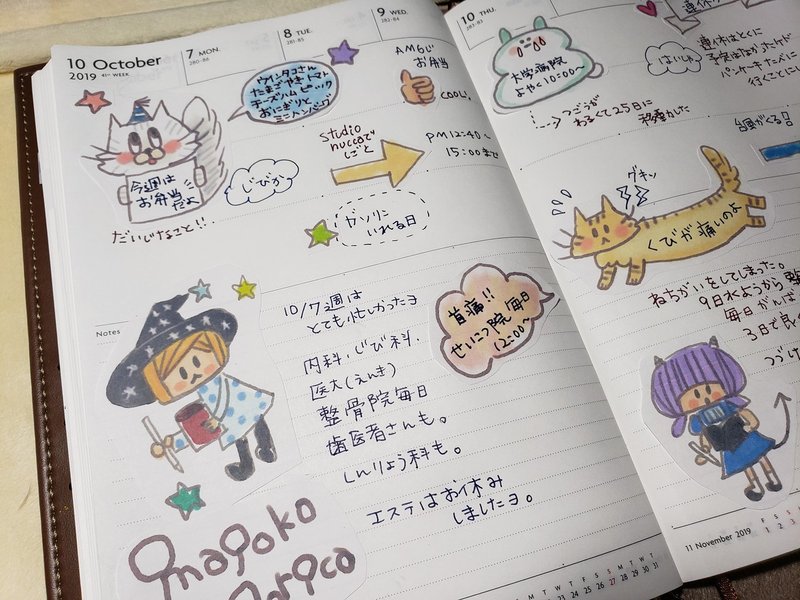 10 October
2019 41st WEEK
7 MON.
280-86
8 TUE.
281-85
9 WED.
282-84
10 THU.
283-83
ウインタコさん
たまごやき トマト
チーズハム ピック
おにぎりと
ミニハンバーグ
AM6じ
お弁当
COOL.
今週は
お弁当
だよ
だいじなこと!!
じびか
studio
nuccaで
しごと
PM12:40〜
15:00まで
ガソリン
いれる日
Notes
10/7週は
とても忙しかったヨ
内科・じび科・
医大(えんき)
整骨院毎日
歯医者さんも。
しんりょう科も。
エステはお休み
しましたヨ。
首痛!!
せいこつ院毎日
12:00〜
大学病院
よやく10:00〜
つごうが
わるくて25日に
移動した
はいしゃ
連休はとくに
パンケーキたべに
行くことに
台風がくる日
グキン
くびが痛いのよ
ねちがいをしてしまった。
9日水ようから
毎日がんば
3日で良
つづけ
11 November 2019